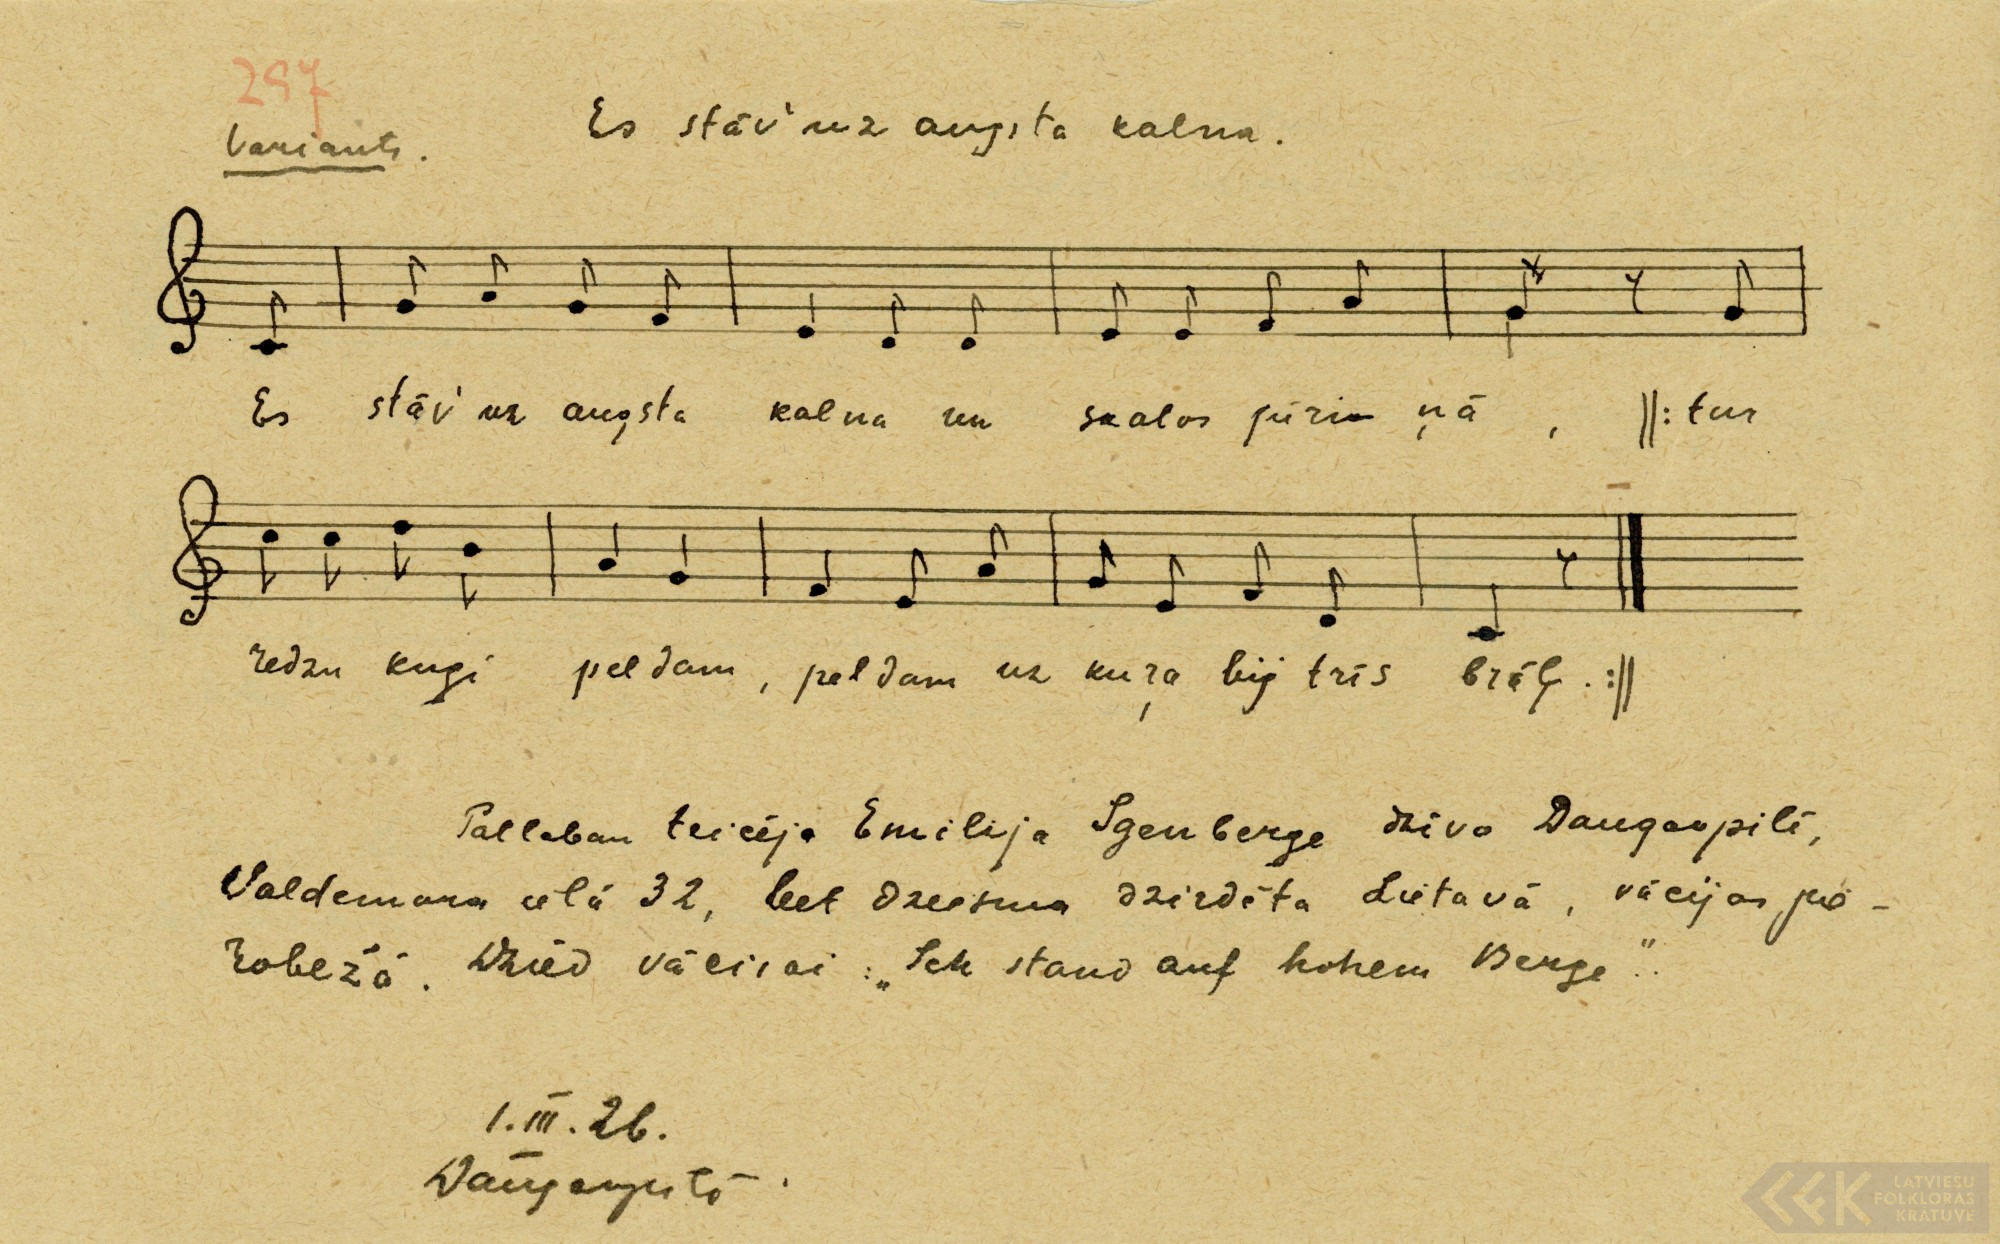 297
Variants.
Es stāv' uz augsta kalna.
Es stāv' uz augsta kalna un skalos jūriņā, ||: tur
redzu kuģi peldam, peldam uz kuŗa bij trīs brāļ. :||
Pallaban teicēja Emilija Igenberge dzīvo Daugavpilī,
Valdemara ielā 32, bet dzeesma dzirdēta Lietavā, vācijas pie-
robežā. Dzied vāciski: „Ich stand auf hohem Berge".
1.III.26.
Daugavpilī.
LATVIEŠU
FOLKLORAS
KRĀTUVE